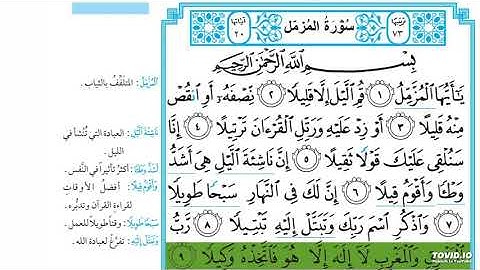 ترتيبها ٧٣ سُورَةُ المُزَّمِّل آياتها ٢٠
بِسْمِ اللَّهِ الرَّحْمَٰنِ الرَّحِيمِ
يَـٰٓأَيُّهَا الْمُزَّمِّلُ ١ قُمِ الَّيْلَ إِلَّا قَلِيلًا ٢ نِّصْفَهُۥٓ أَوِ انقُصْ
مِنْهُ قَلِيلًا ٣ أَوْ زِدْ عَلَيْهِ وَرَتِّلِ الْقُرْءَانَ تَرْتِيلًا ٤ إِنَّا
سَنُلْقِي عَلَيْكَ قَوْلًا ثَقِيلًا ٥ إِنَّ نَاشِئَةَ الَّيْلِ هِيَ أَشَدُّ
وَطْـًٔا وَأَقْوَمُ قِيلًا ٦ إِنَّ لَكَ فِي النَّهَارِ سَبْحًا طَوِيلًا
٧ وَاذْكُرِ اسْمَ رَبِّكَ وَتَبَتَّلْ إِلَيْهِ تَبْتِيلًا ٨ رَّبُّ
الْمَشْرِقِ وَالْمَغْرِبِ لَآ إِلَٰهَ إِلَّا هُوَ فَاتَّخِذْهُ وَكِيلًا ٩
الْمُزَّمِّلُ: المتلفِّف بالثياب.
نَاشِئَةَ الَّيْلِ: العبادة التي تُنشأ في
الليل.
أَشَدُّ وَطْـًٔا: أكثرُ تأثيراً في النَّفس.
وَأَقْوَمُ قِيلًا: أفضل الأوقات
لقراءة القرآن وتدبُّره.
سَبْحًا طَوِيلًا: وقتاً طويلاً للعمل.
وَتَبَتَّلْ إِلَيْهِ: تفرَّغْ لعبادة الله.
TOVID.IO